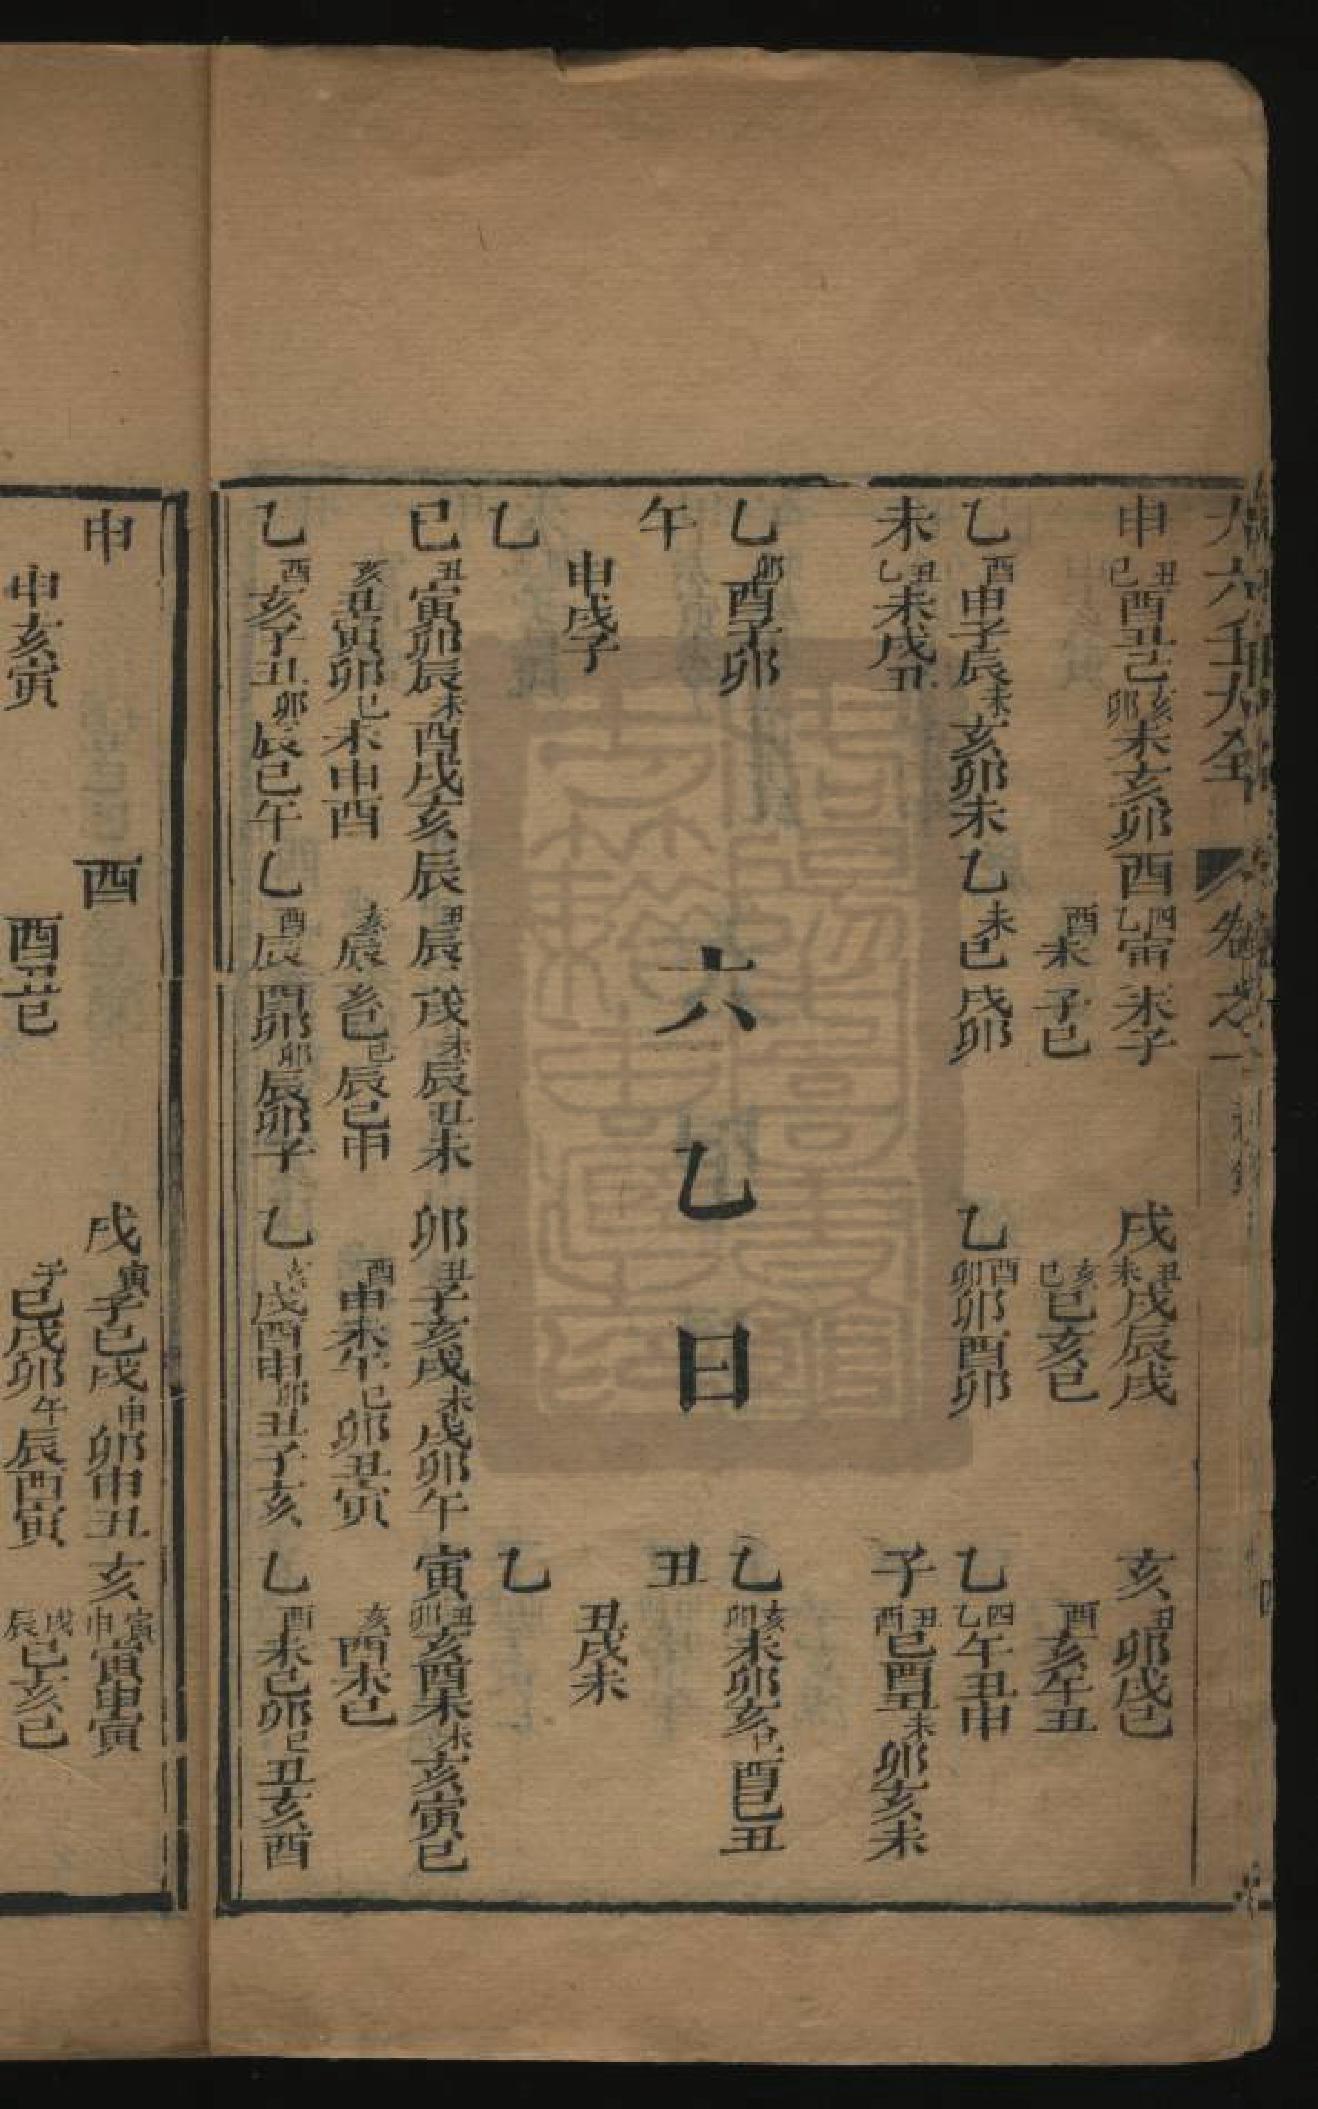 大六壬大全 卷之一
申 丑巳酉丑巳亥卯未亥卯
酉 寅未子
酉未子巳
戌 丑未戌辰戌
亥巳巳亥巳
亥 丑卯戌巳
酉亥午丑
乙 酉申子辰未亥卯未
乙 未巳戌卯
乙 酉卯卯酉卯
乙 午丑申
未 丑乙未戌丑
子 丑酉巳酉丑未卯亥未
乙 卯酉子卯
乙 亥卯未卯亥 酉巳丑
午
六乙日
丑
申戌子
丑戌未
乙
乙
巳 丑寅卯辰未酉戌亥
辰 丑辰戌未辰丑未
卯 丑子亥戌未戌卯午
寅 丑卯亥酉未未亥寅巳
亥丑寅卯巳未申酉
亥辰亥巳巳辰巳申
酉申未午巳卯丑寅
亥酉未巳
乙 酉亥子丑卯辰巳午
乙 酉辰酉卯卯辰卯子
乙 亥戌酉申卯丑子亥
乙 酉未巳卯巳丑亥酉
申
酉
戌 寅子巳戌申卯申丑
亥 寅申寅申寅
申亥寅
酉丑巳
子巳戌卯午辰酉寅
戌辰巳亥巳